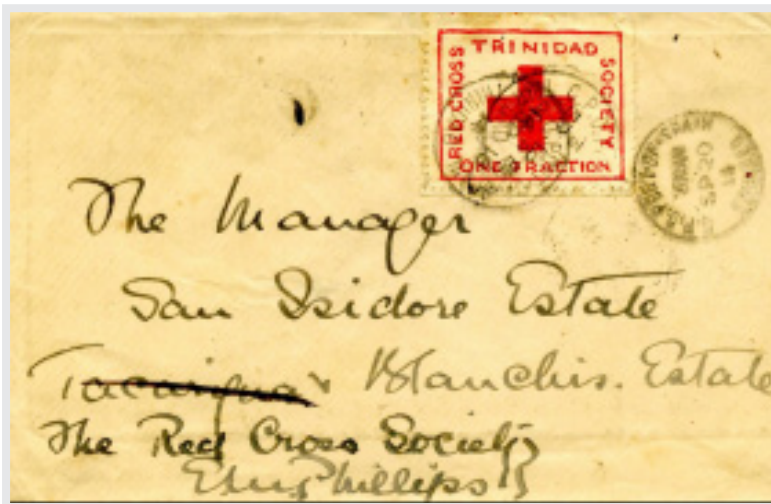 TRINIDAD
RED CROSS
SOCIETY
ONE FRACTION
The Manager
San Isidore Estate
Blanchis. Estate
The Red Cross Society
Phillips